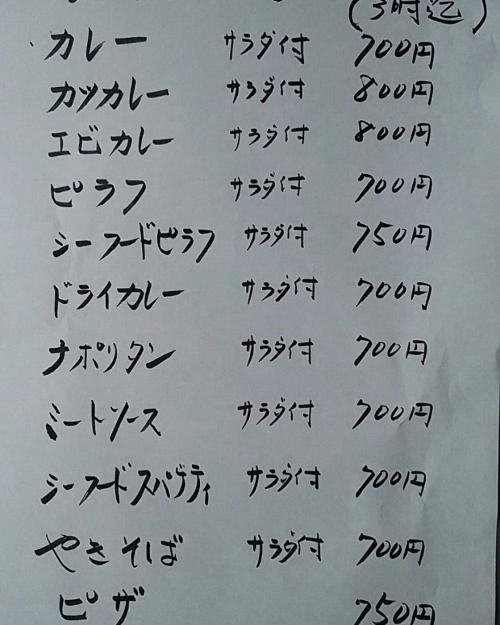 (3時迄)
カレー サラダ付 700円
カツカレー サラダ付 800円
エビカレー サラダ付 800円
ピラフ サラダ付 700円
シーフードピラフ サラダ付 750円
ドライカレー サラダ付 700円
ナポリタン サラダ付 700円
ミートソース サラダ付 700円
シーフードスパゲティ サラダ付 700円
やきそば サラダ付 700円
ピザ 750円